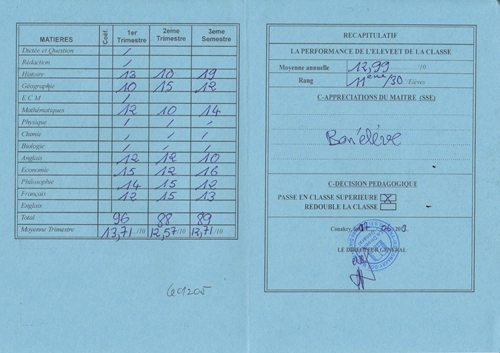 MATIERES Coéf. 1er Trimestre 2eme Trimestre 3eme Semestre
Dictée et Question /
Rédaction /
Histoire 13 10 19
Géographie 10 15 12
E C M /
Mathématiques 12 10 14
Physique / / /
Chimie / / /
Biologie / / /
Anglais 12 12 10
Economie 15 12 16
Philosophie 14 15 12
Français 12 15 13
Englais
Total 96 88 89
Moyenne Trimestre 13,71 /10 12,57 /10 12,71 /10
69205
RECAPITULATIF
LA PERFORMANCE DE L'ELEVEET DE LA CLASSE
Moyenne annuelle 12,99 /10
Rang 11eme/30 Elèves
C-APPRECIATIONS DU MAITRE (SSE)
Bon élève
C-DECISION PEDAGOGIQUE
PASSE EN CLASSE SUPERIEURE X
REDOUBLE LA CLASSE
Conakry,
LE DIRECTEUR GENERAL